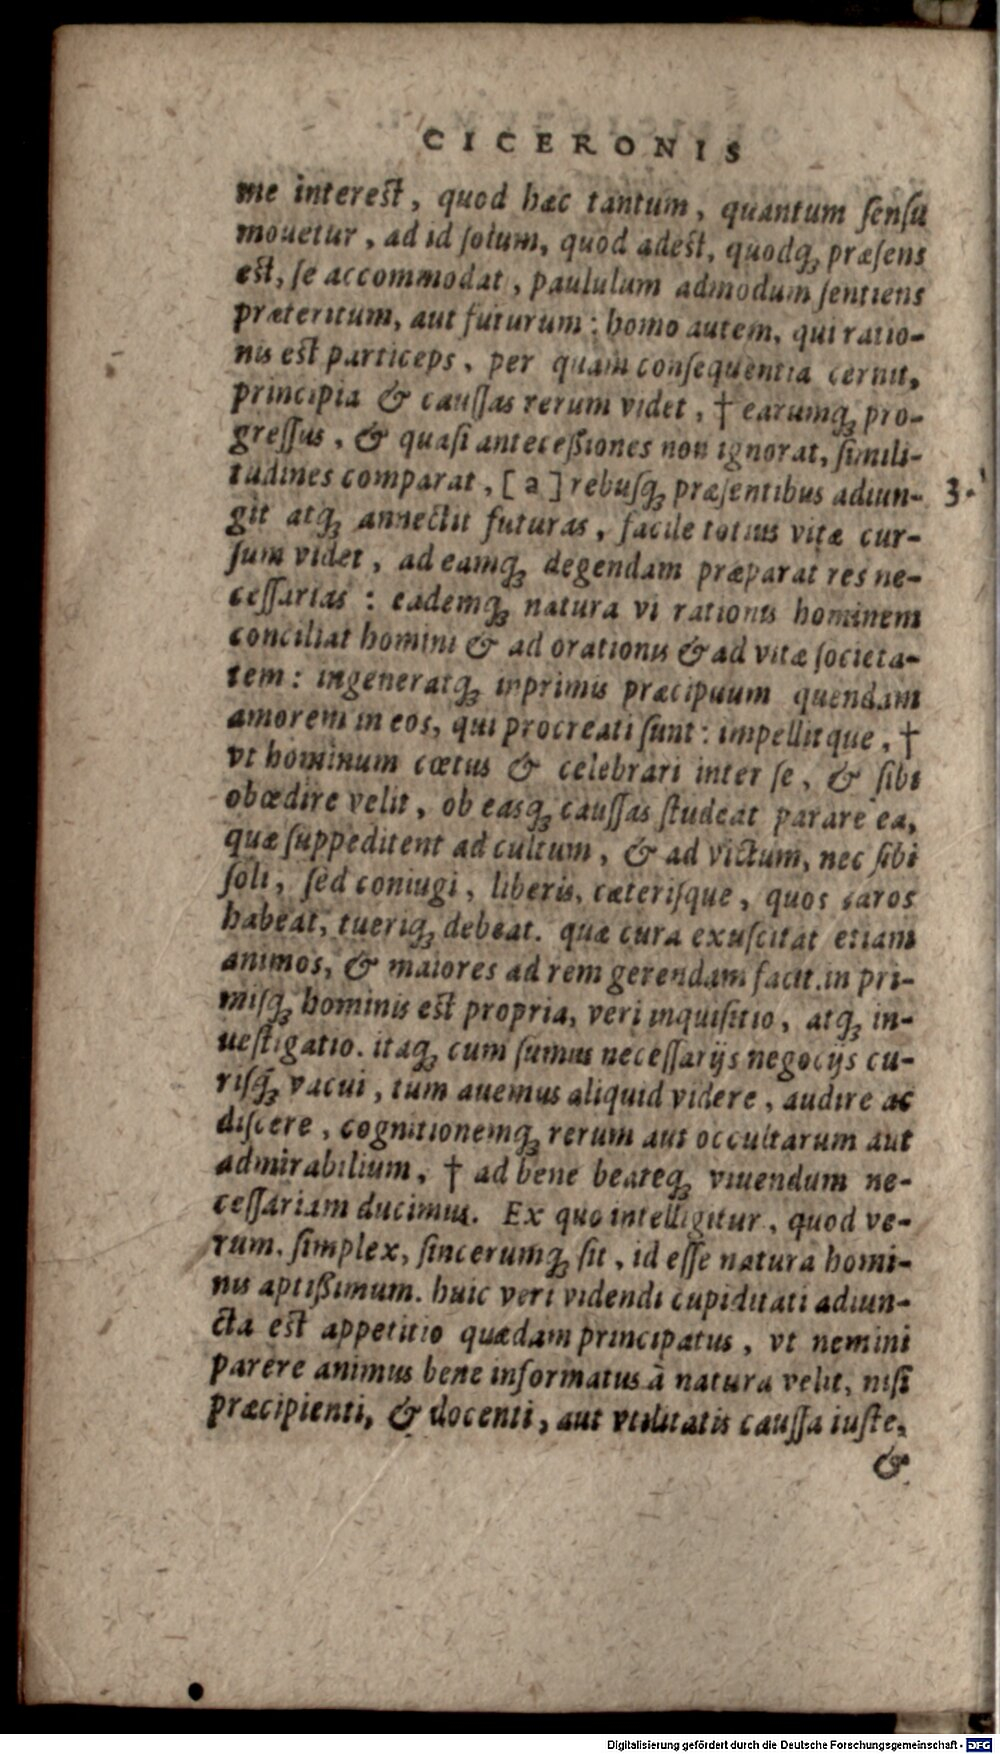 CICERONIS
me interest, quod hæc tantum, quantum ſenſu
mouetur, ad id ſolum, quod adest, quodq́ꝫ præſens
est, ſe accommodat, paululum admodum ſentiens
præteritum, aut futurum: homo autem, qui ratio-
nis est particeps, per quam conſequentia cernit,
principia & cauſſas rerum videt, † earumq́ꝫ pro-
greſſus, & quaſi anteceßiones non ignorat, ſimili-
tudines comparat, [a] rebuſq́ꝫ præſentibus adiun-
3.
git atq́ꝫ annectit futuras, facile totius vitæ cur-
ſum videt, ad eamq́ꝫ degendam præparat res ne-
ceſſarias: eademq́ꝫ natura vi rationis hominem
conciliat homini & ad orationis & ad vitæ ſocieta-
tem: ingeneratq́ꝫ inprimis præcipuum quendam
amorem in eos, qui procreati ſunt: impellitque, †
vt hominum cœtus & celebrari inter ſe, & ſibi
obœdire velit, ob easq́ꝫ cauſſas ſtudeat parare ea,
quæ ſuppeditent ad cultum, & ad victum, nec ſibi
ſoli, ſed coniugi, liberis, cæteriſque, quos caros
habeat, tueriq́ꝫ debeat. quæ cura exuſcitat etiam
animos, & maiores ad rem gerendam facit. in pri-
miſq́ꝫ hominis est propria, veri inquiſitio, atq́ꝫ in-
ueſtigatio. itaq́ꝫ cum ſumus neceſſarijs negocijs cu-
riſq́ꝫ vacui, tum auemus aliquid videre, audire ac
diſcere, cognitionemq́ꝫ rerum aut occultarum aut
admirabilium, † ad bene beateq́ꝫ viuendum ne-
ceſſariam ducimus. Ex quo intelligitur, quod ve-
rum, ſimplex, ſincerumq́ꝫ ſit, id eſſe natura homi-
nis aptißimum. huic veri videndi cupiditati adiun-
cta est appetitio quædam principatus, vt nemini
parere animus bene informatus à natura velit, niſi
præcipienti, & docenti, aut vtilitatis cauſſa iuſte,
&
Digitalisierung gefördert durch die Deutsche Forschungsgemeinschaft - DFG